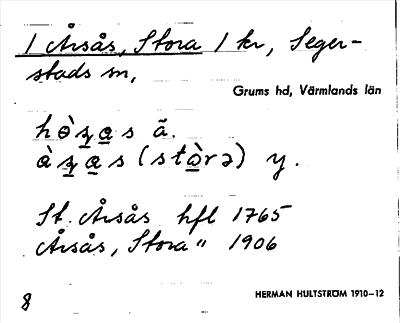 1 Årsås, Stora 1 kr, Seger-
stads sn,
Grums hd, Värmlands län
ä.
(stɷ̀rə) y.
St. Årsås hfl 1765
Årsås, Stora " 1906
HERMAN HULTSTRÖM 1910–12
8